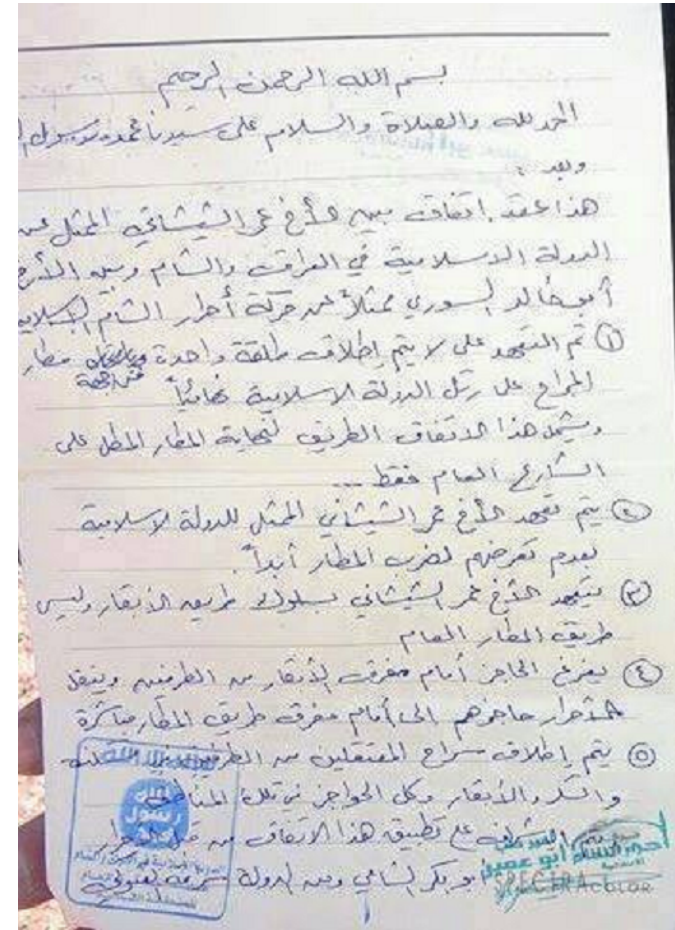 بسم الله الرحمن الرحيم
الحمد لله والصلاة والسلام على سيدنا محمد رسول
وبعد :
هذا عقد اتفاق بين الأخ عمر الشيشاني الممثل عن
الدولة الاسلامية في العراق والشام وبين الأخ
أبو خالد السوري ممثلاً عن حركة أحرار الشام الإسلامية
① تم التعهد على لا يتم إطلاق طلقة واحدة من جهة مطار
الجراح على رتل الدولة الاسلامية نهائياً
ويشمل هذا الاتفاق الطريق لنهاية المطار المطل على
الشارع العام فقط ...
② يتم تعهد الأخ عمر الشيشاني الممثل للدولة الاسلامية
بعدم تعرضهم لضرب المطار أبداً.
③ يتعهد الأخ عمر الشيشاني بسلوك طريق الأبقار وليس
طريق المطار العام
④ يفرغ الحاجز أمام مفرق الأبقار من الطرفين وينقل
الأحرار حاجزهم الى أمام مفرق طريق المطار مباشرة
⑤ يتم إطلاق سراح المعتقلين من الطرفين
والسكر والأبقار وكل الحواجز في تلك المناطق
يتم على تطبيق هذا الاتفاق من قبل الأحرار
أبو بكر الشامي ومن الدولة
الله
رسول
محمد
أحرار الشام
أبو عمير
SPECTRAcolor